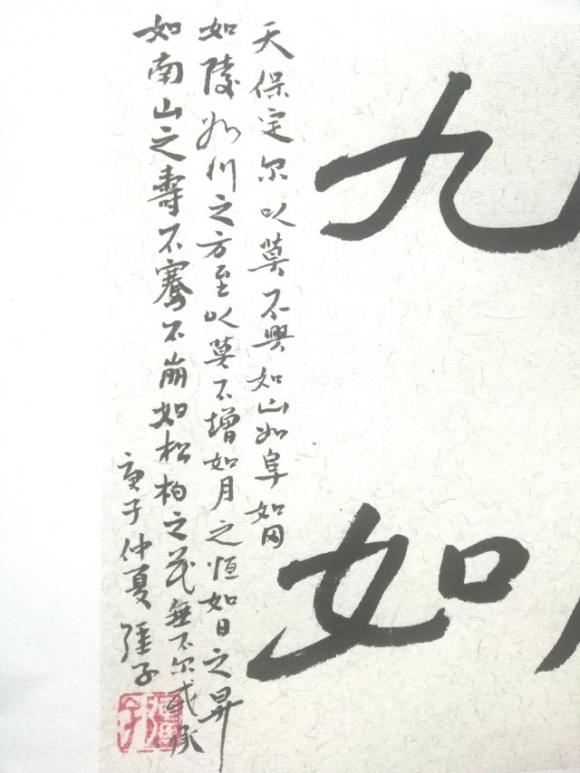 九如
天保定尔以莫不興如山如阜如冈
如陵如川之方至以莫不增如月之恒如日之昇
如南山之壽不騫不崩如松柏之茂無不尔或承
庚子仲夏